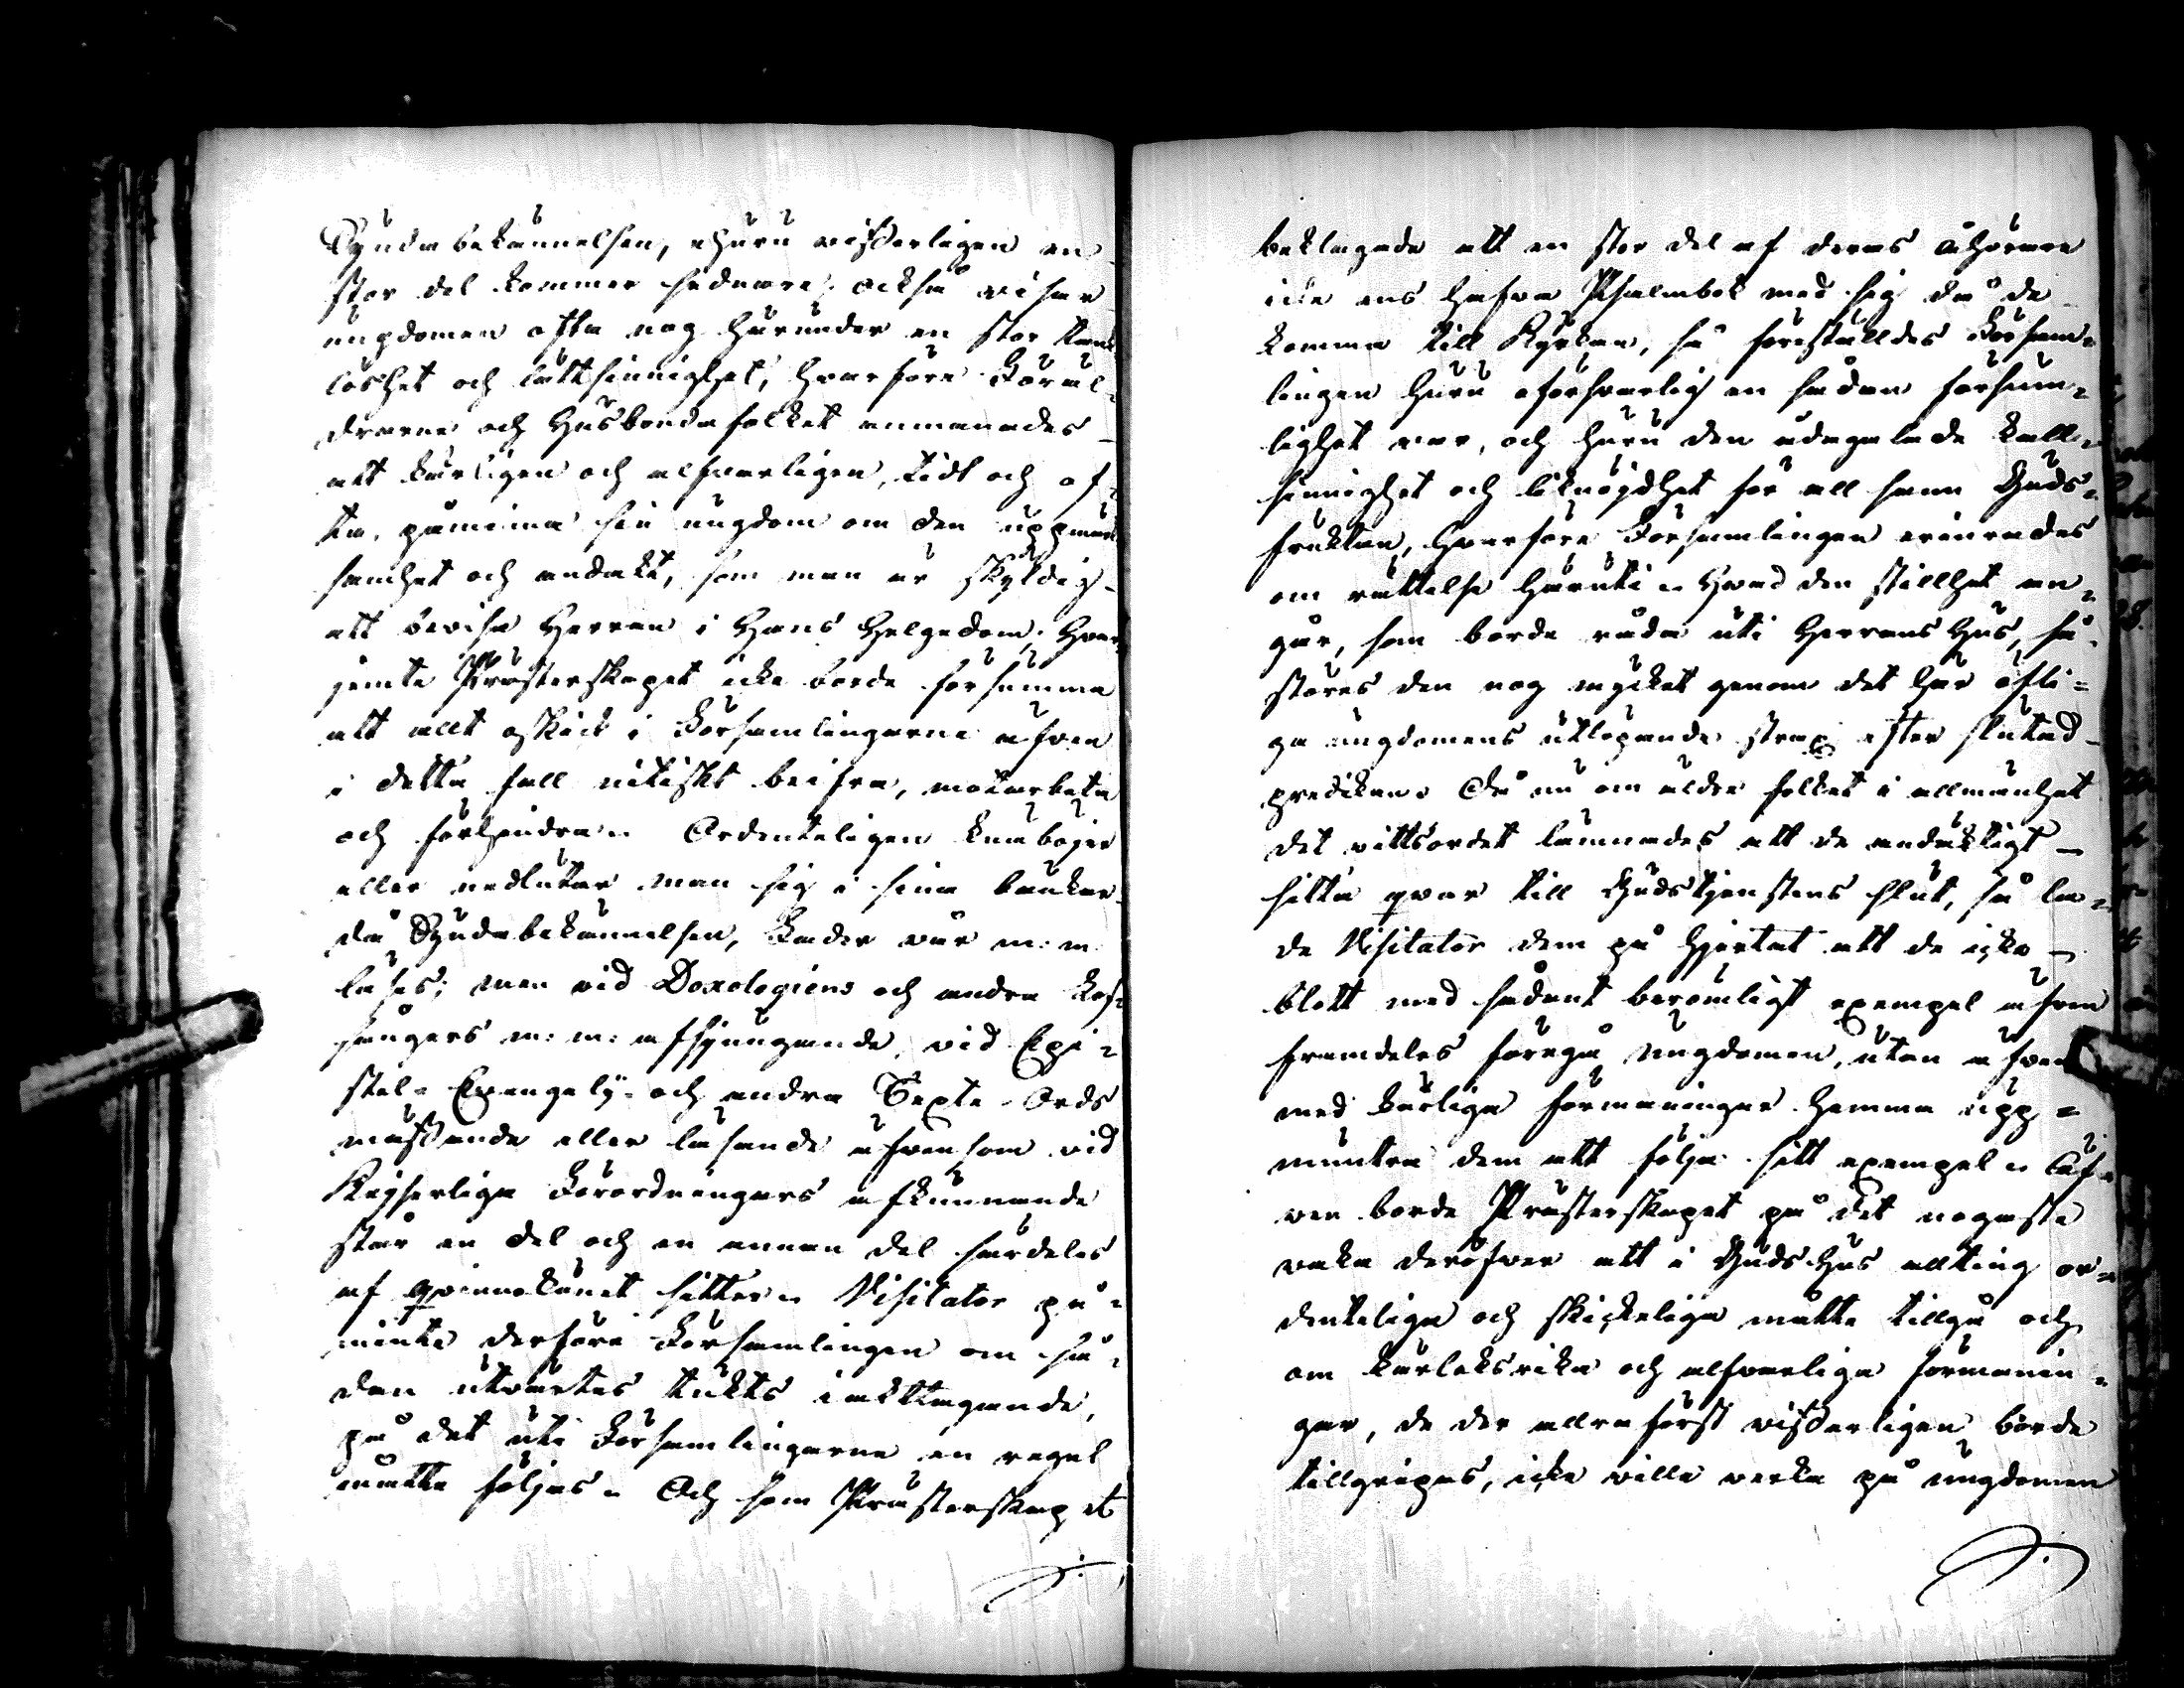 Syndabekännelsen, ehuru visserligen en
stor del kommer sednare; också visar
ungdomen ofta nog härunder en stor tank
löshet och lättsinnighet, hvarföre Föräl-
drarne och Husbondafolket anmanades
att kärligen och alfvarligen, tidt och of-
ta, påminna sin ungdom om den uppmärk
samhet och andakt, som man är skyldig
att bevisa Herran i Hans Helgedom; Hvar
jemte Prästerskapet icke borde försumma
att allt oskick i Församlingarne äfven
i detta fall nitiskt beifra, motarbeta
och förhindra. Ordenteligen knäböjer
eller nedlutar man sig i sina bänkar
då Syndabekännelsen, Fader vår m: m:
läses; men vid Doxologiens och andra Lof-
sångers m: m: afsjungande, vid Epi-
stel- Evangelij- och andra Texte-Ords
mässande eller läsande äfvensom vid
Kejserliga Förordningars afkunnande
står en del och en annan del särdeles
af qvinnokönet sitter. Visitator på-
minte derföre Församlingen om så-
dan utvärtes tukts iakttagande,
på det uti Församlingarne en regel
måtte följas. Och som Prästerskapet
beklagade att en stor del af deras åhörare
icke ens hafva Psalmbok med sig då de
komma till Kyrkan, så föreställdes Försam-
lingen huru oförsvarlig en sådan försum-
lighet var, och huru den ådagalade kall-
sinnighet och liknöjdhet för all sann Guds-
fruktan, hvarföre Församlingen erinrades
om rättelse häruti. Hvad den stillhet an-
går, som borde råda uti Herrans Hus, så
störes den nog mycket genom det här öfli-
ga ungdomens utlöpande strax efter slutad
predikan. Då nu om äldre folket i allmänhet
det vittsordet lämnades att de andäktigt
sitta qvar till Gudstjenstens slut, så la-
de Visitator dem på hjertat att de icke
blott med sådant berömligt exempel äfven
framdeles föregå ungdomen, utan äfven
med kärliga förmaningar hemma upp-
muntra dem att följa sitt exempel. Äf-
ven borde Prästerskapet på det nogaste
vaka deröfver att i Guds Hus allting or-
denteliga och skickeliga måtte tillgå och
om kärleksrika och alfvarliga förmanin-
gar, de der allraförst visserligen borde
tillgripas, icke ville verka på ungdomen